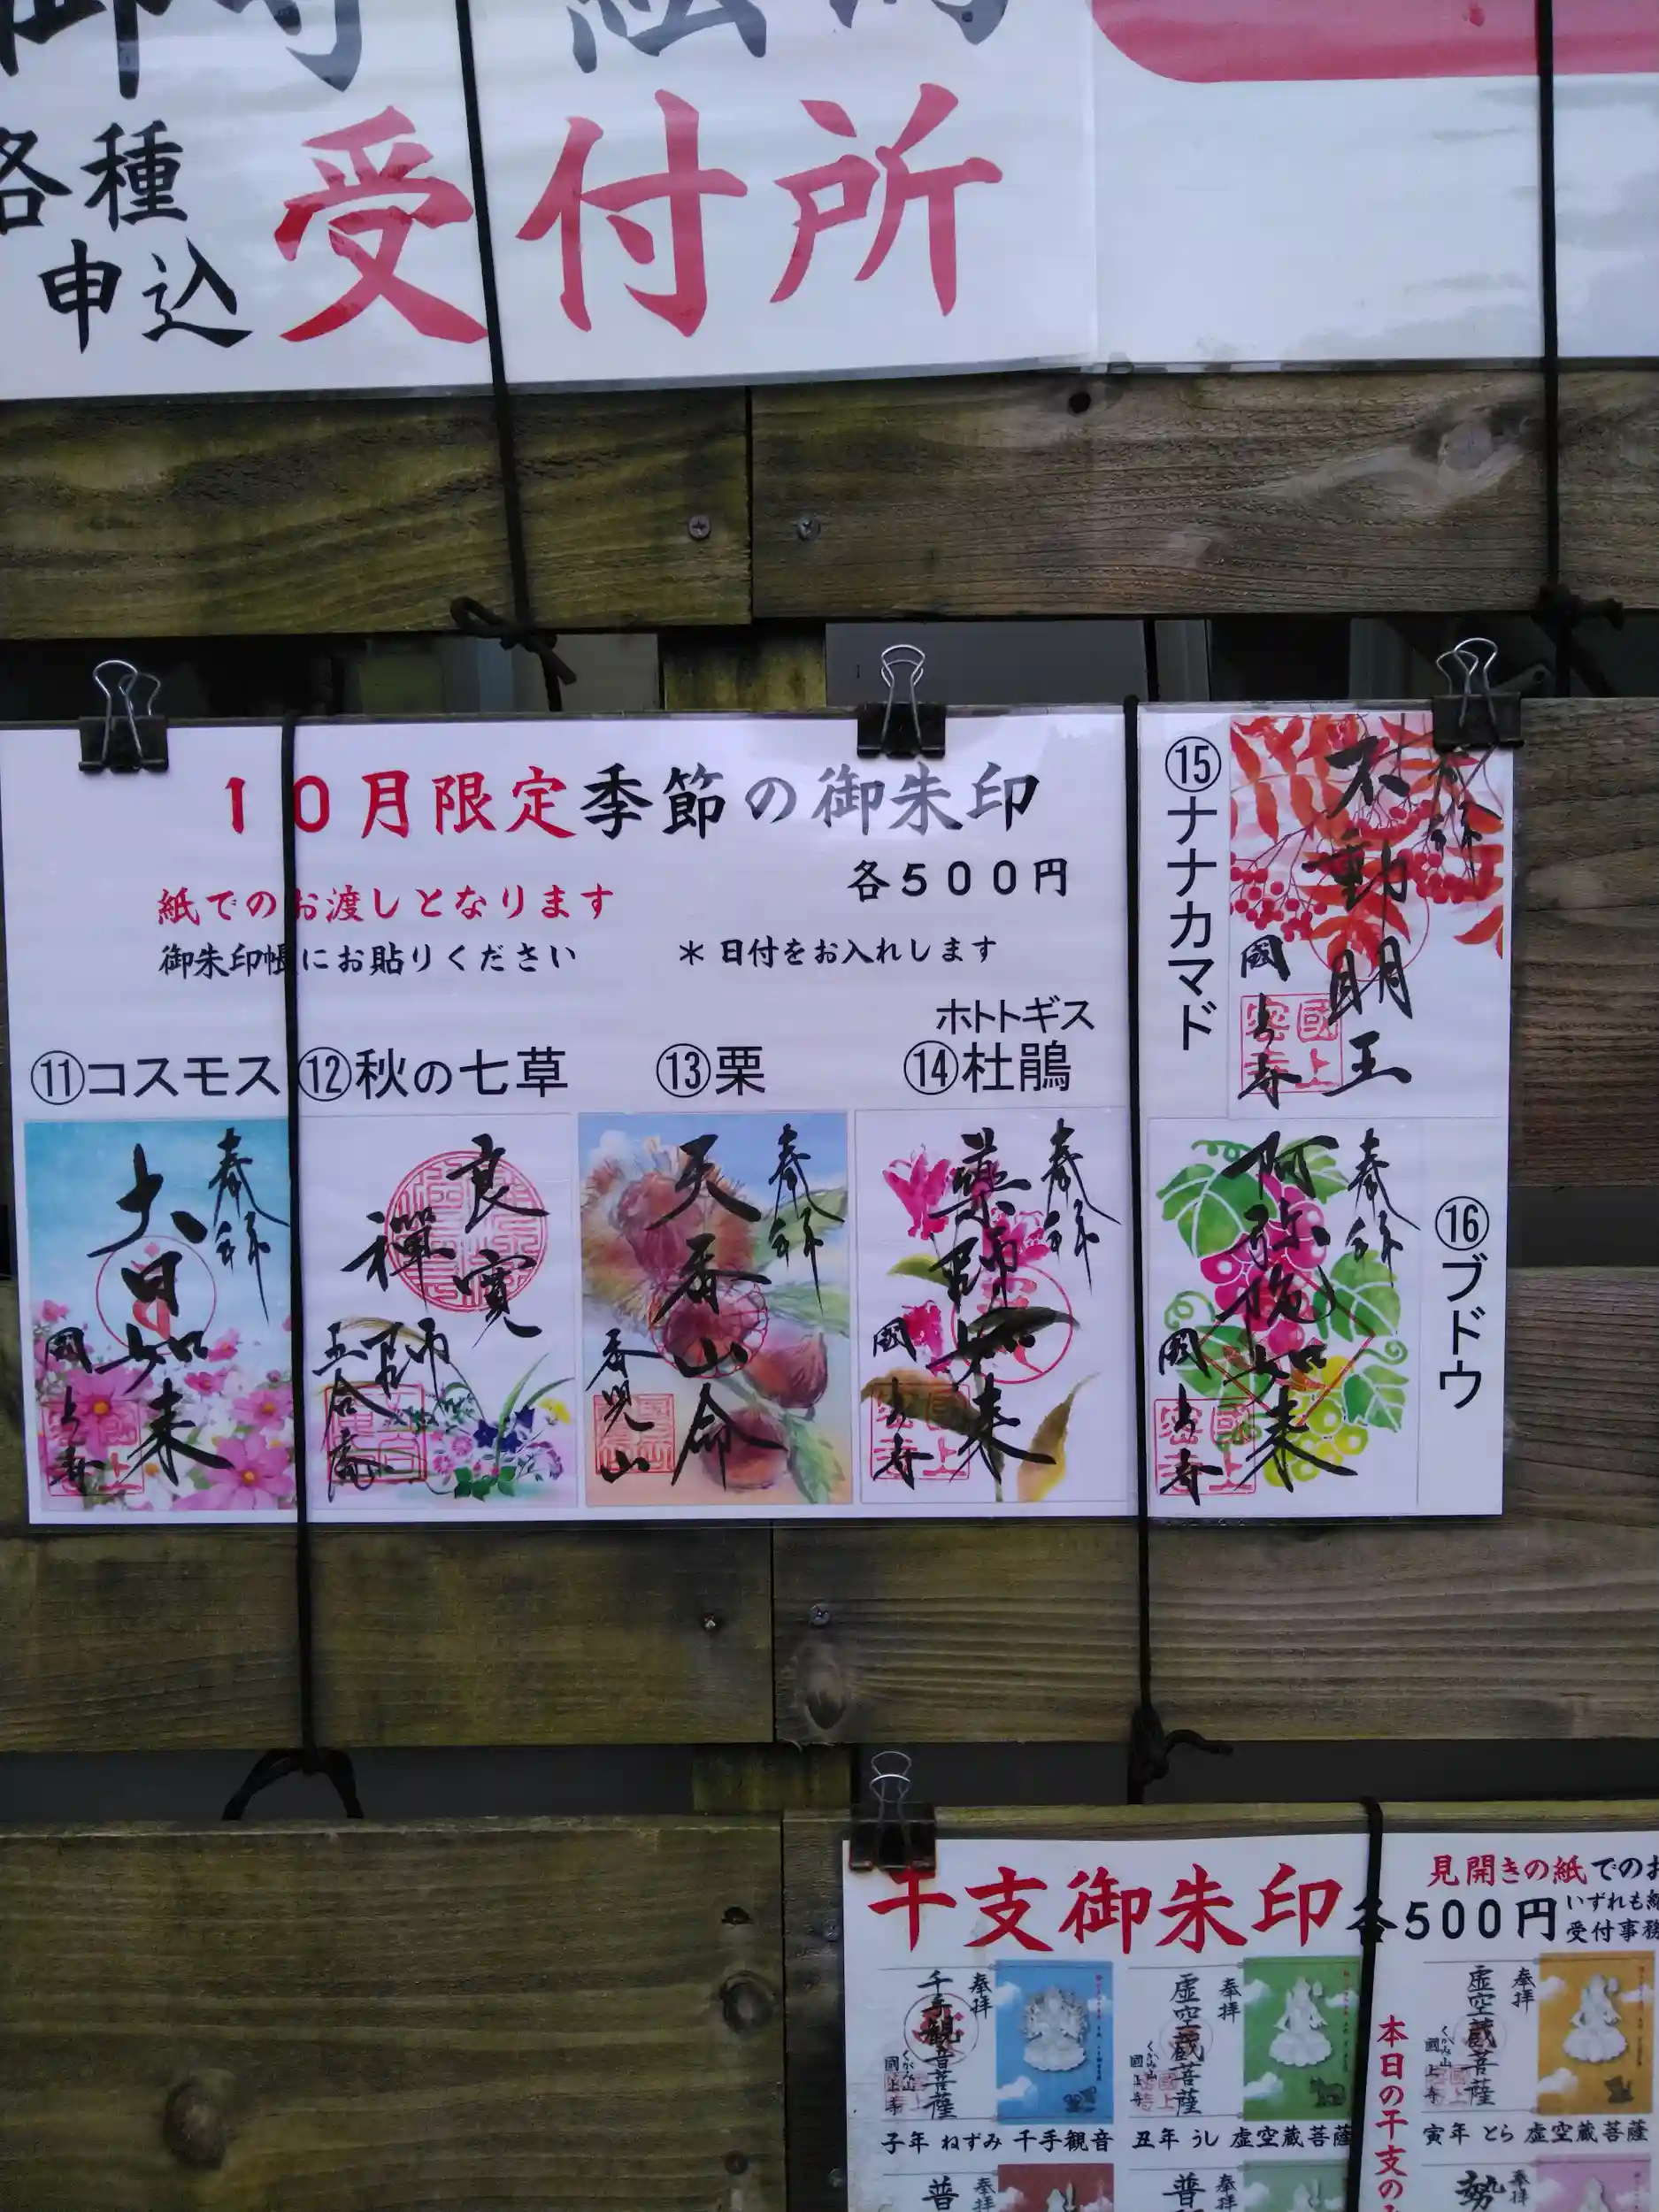 各種
申込
受付所
10月限定季節の御朱印
各500円
紙でのお渡しとなります
御朱印帳にお貼りください
＊日付をお入れします
⑪コスモス
⑫秋の七草
⑬栗
ホトトギス
⑭杜鵑
⑮ナナカマド
⑯ブドウ
奉拝
大日如来
國上寺
良寛
禅師
五合庵
奉拝
天香山命
香児山
奉拝
薬師如来
國上寺
奉拝
不動明王
國上寺
奉拝
阿弥陀如来
國上寺
干支御朱印
各500円
見開きの紙でのお
いずれも紙
受付事務
奉拝
千手観音菩薩
くがみ山
國上寺
子年 ねずみ 千手観音
奉拝
虚空蔵菩薩
くがみ山
國上寺
丑年 うし 虚空蔵菩薩
本日の干支のみ
奉拝
虚空蔵菩薩
くがみ山
國上寺
寅年 とら 虚空蔵菩薩
奉拝
普
奉拝
普
奉拝
勢